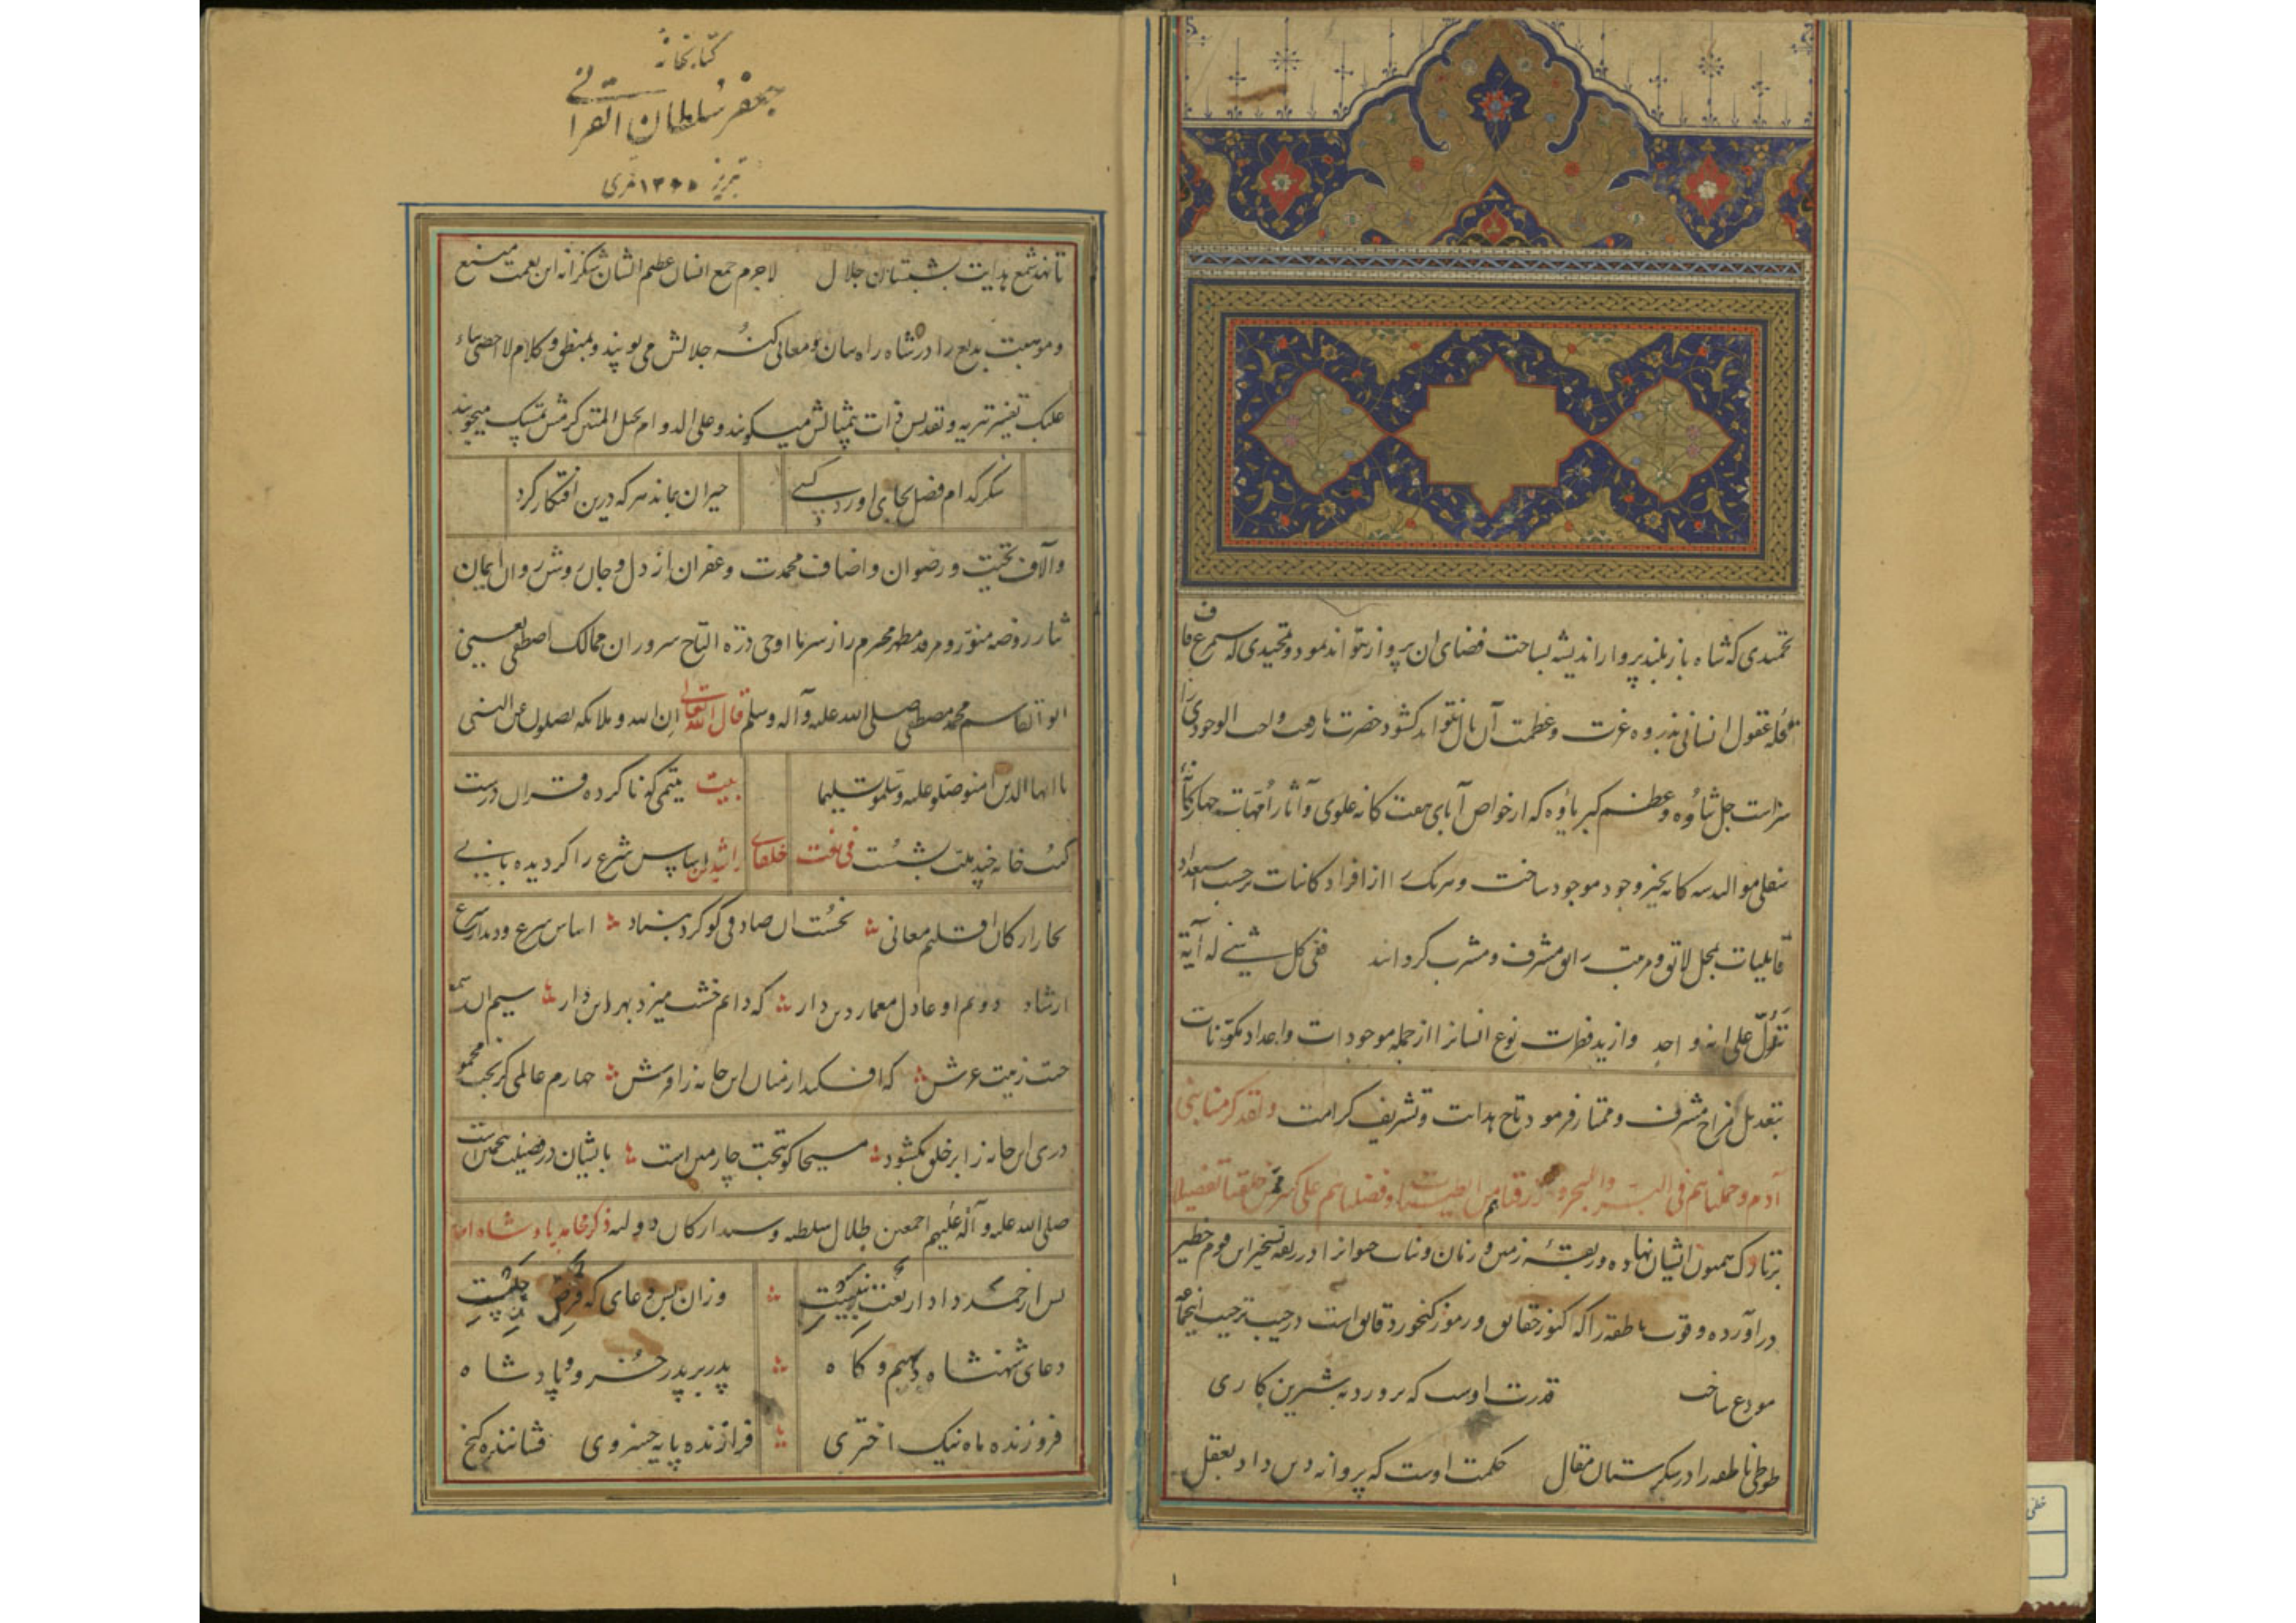 تحمیدی که شاه باز بلند پرواز اندیشه بساحت فضای ان پرواز نتواند نمود و تمجیدی که سیمرغ قاف
قله عقول انسانی بذروه عزت و عظمت آن بال نتواند کشود حضرت واجب الوجودی را
سزاست جل ثناؤه و عظم کبریاؤه که از خواص آبای هفت کانه علوی و آثار امهات چهارکانه
سفلی موالید سه کانه بحیز وجود موجود ساخت و هر یک را از افراد کاینات برحسب استعداد
قابلیات بمحل لایق و مرتب رایق مشرف و مشرب کردانید ففی کل شیئ له آیة
تدل علی انه واحد واز بد فطرت نوع انسانرا از جمله موجودات و اعداد مکونات
بتعدیل مزاح مشرف و ممتاز فرمود تاج هدایت و تشریف کرامت ولقد کرمنا بنی
آدم و حملناهم فی البر والبحر و رزقناهم من الطیبات و فضلناهم علی کثیر ممن خلقنا تفضیلا
برتارک همیون ایشان نهاده و ربقه زمین و زمان و حیوانرا در ربقه تسخیر این قوم خطیر
درآورده و قوت ناطقه را که کنوز حقایق و رموز کنجور دقایق است در جیب ترحیب
مودع ساخت قدرت اوست که پرورد به شیرین کاری
طوطی ناطقه را در شکرستان مقال حکمت اوست که پروانه دین داد بعقل
کتابخانه
جعفر سلطان القرائی
تبریز
تا نهد شمع هدایت بشبستان جلال لاجرم جمع انسان عظیم الشان شکرانه این نعمت منیع
و موهبت بدیع را در شاه راه بیان و معانی کنه جلالش می پویند و بمنطوق کلام لا احصی ثناء
علیک تفسیر تنزیه و تقدیس ذات بیمثالش میکویند و علی الدوام بحبل المتین کرمش تمسک میجویند
شکر کدام فضل بجای اورد کسی حیران بماند هر که درین افتکار کرد
و آلاف تحیت و رضوان و اضعاف محمدت و غفران از دل و جان روشن روان ایمان
نثار روضه منور و مرقد مطهر محرم راز سر ما اوحی درة التاج سروران ممالک اصطفی یعنی
ابو القاسم محمد مصطفی صلی الله علیه وآله وسلم قال الله تعالی ان الله و ملائکته یصلون علی النبی
یا ایها الذین امنوا صلوا علیه و سلموا تسلیما بیت یتیمی که ناکرده قران درست
کتب خانه چند ملت بشست فی نعت خلفای راشدین اساس شرع را کردیده بانی
بچار ارکان اقلیم معانی نخست ان صادقی کو کرد بنیاد اساس شرع و دیدار
ارشاد دوم او عادل معمار دین دار که دایم خشت میزد بهر این دار سیم ان
زینت عرش که افکند از میان این خانه را فرش چهارم عالمی کز
دری این خانه را بر خلق بکشود مسیحا کو تحت چارمین است بایشان در فضیلت همچنین است
صلی الله علیه و آله علیهم اجمعین ظلال سلطنه و ارکان دولته ذکر محامد پادشاه
پس از حمد دادار نعت نبیست وزان پس دعای که فرض
دعای شهنشاه دیهیم و کاه پدر بر پدر خسرو و پادشاه
فروزنده ماه نیک اختری فرازنده پایه خسروی فشاننده کنج
خطی